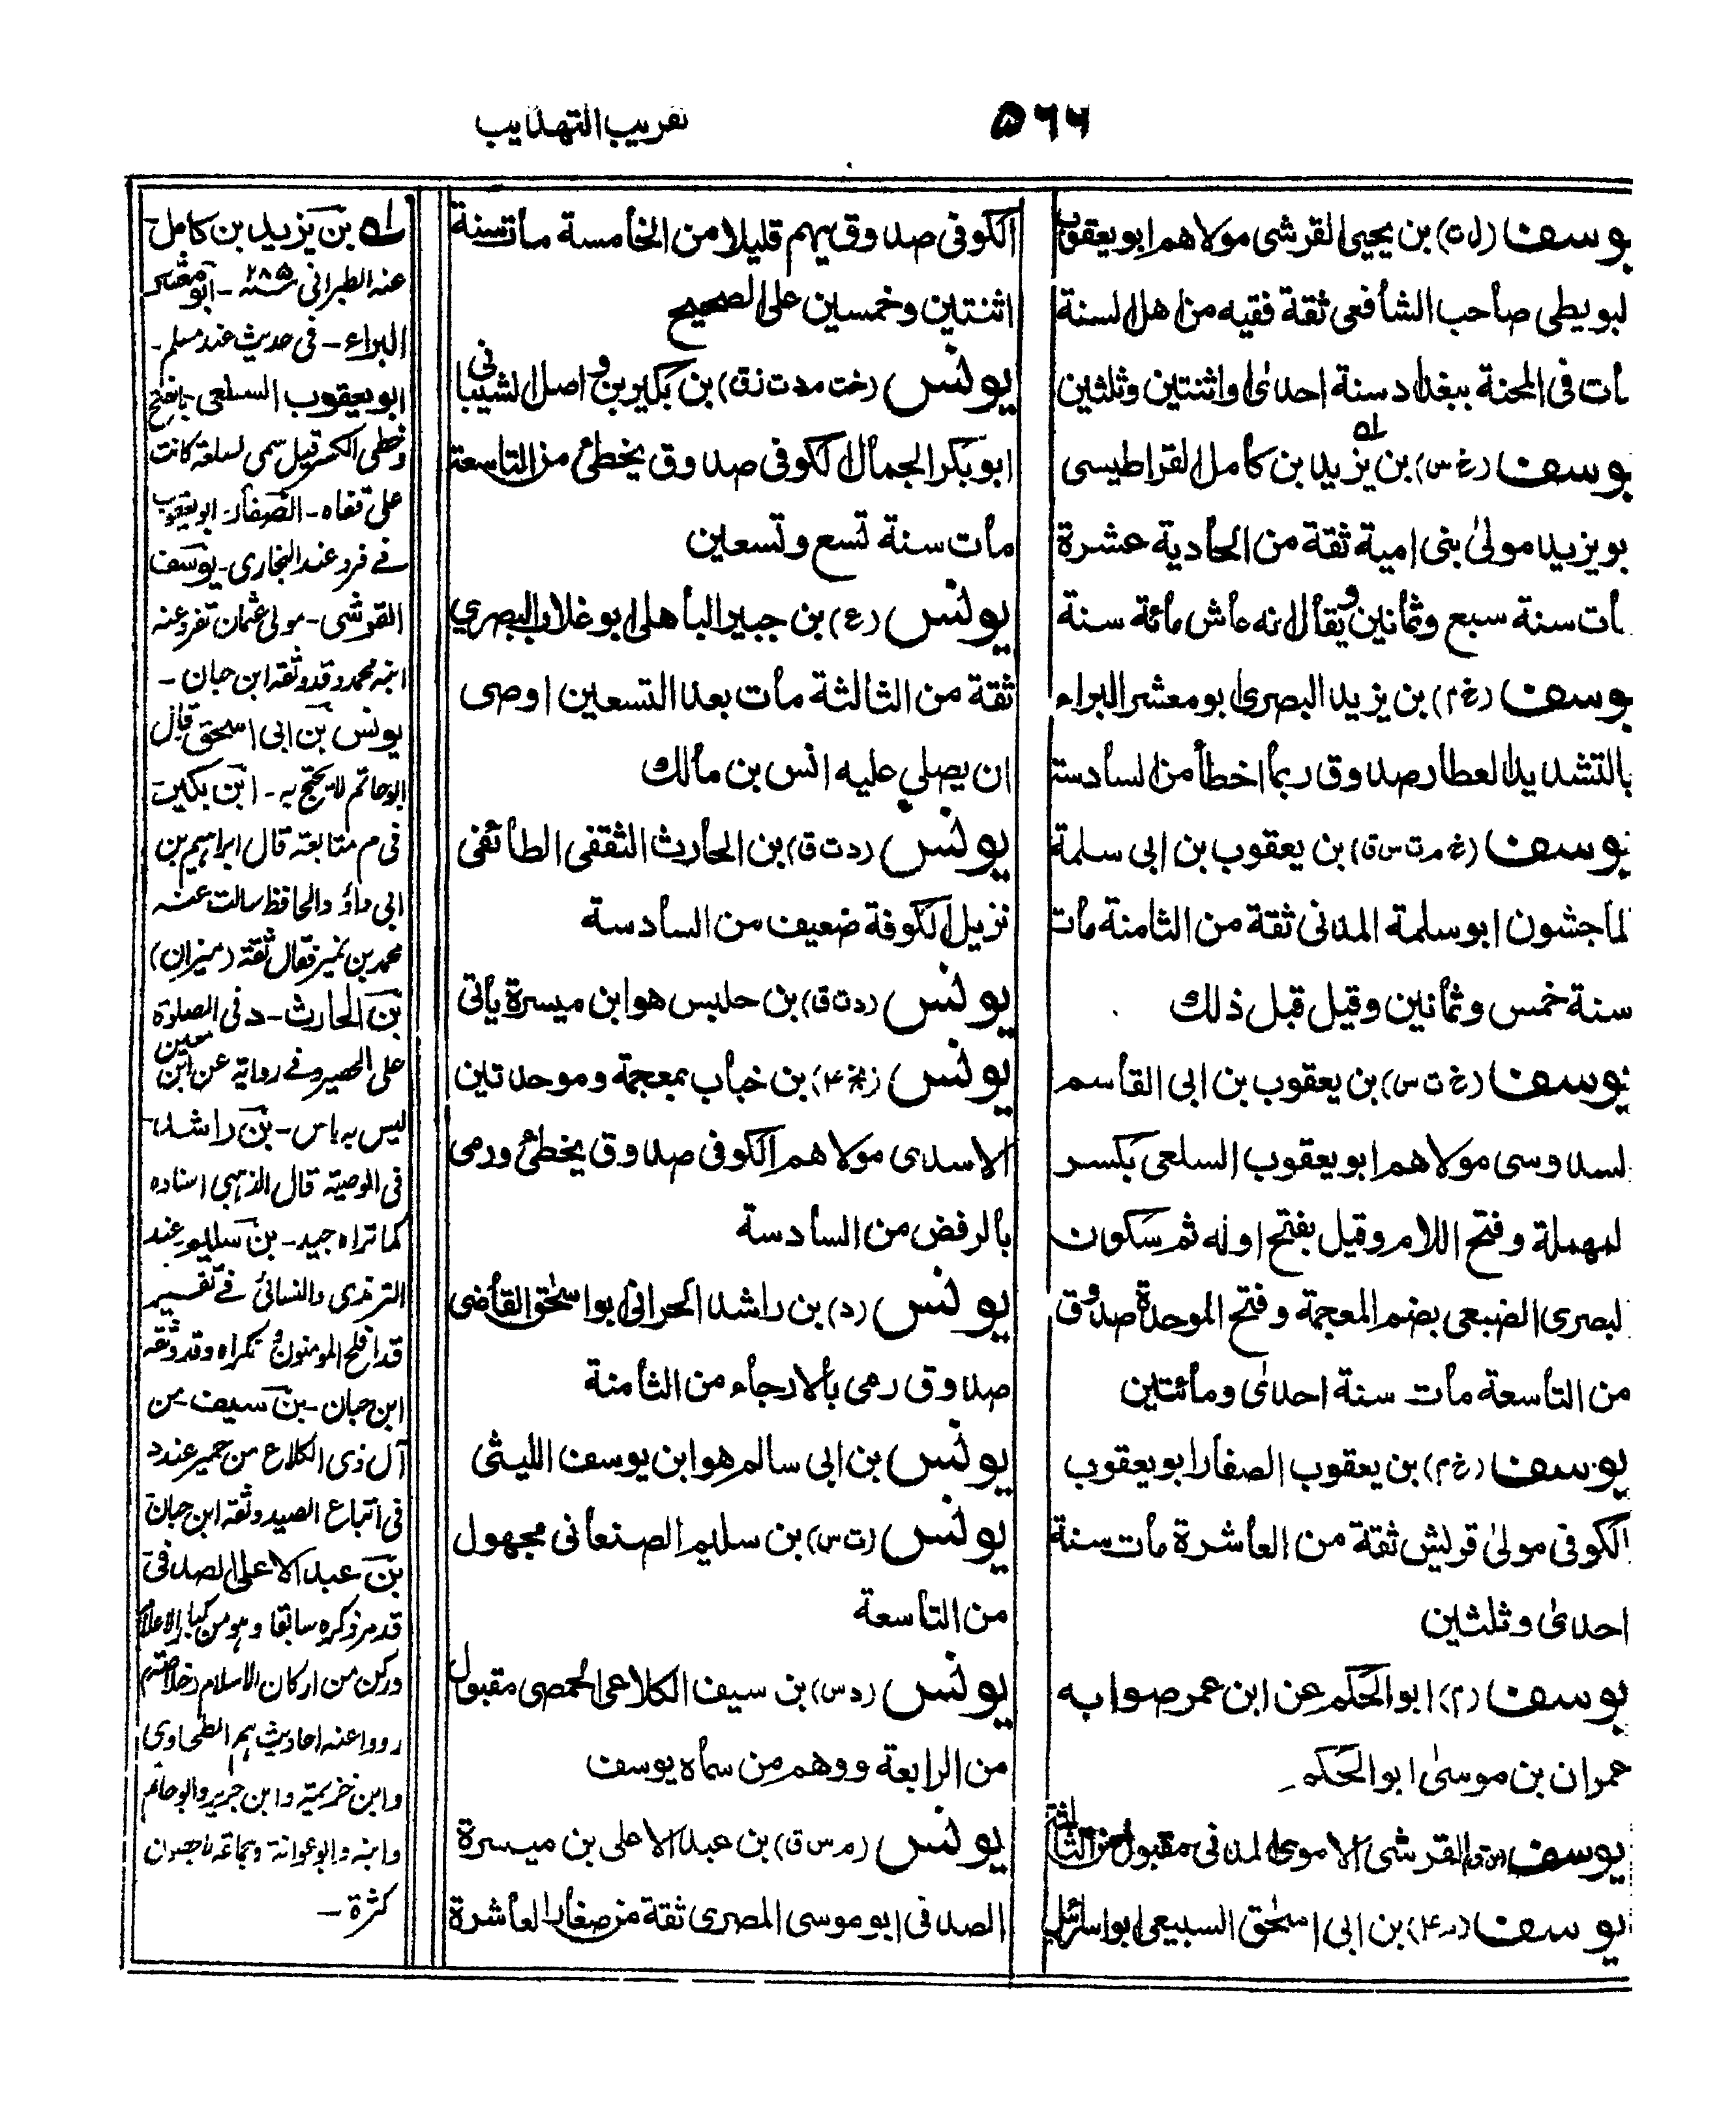 ٥٦٦
تقريب التهذيب
يوسف (ل ت) بن يحيى القرشي مولاهم ابو يعقوب
لبويطي صاحب الشافعي ثقة فقيه من اهل السنة
مات في المحنة ببغداد سنة احدى او اثنتين وثلثين
يوسف (س) بن يزيد بن كامل القراطيسي
بو يزيد مولى بني امية ثقة من الحادية عشرة
مات سنة سبع وثمانين ويقال انه عاش مائة سنة
يوسف (خ م) بن يزيد البصري ابو معشر البراء
بالتشديد العطار صدوق ربما اخطأ من السادسة
يوسف (خ م ت س ق) بن يعقوب بن ابي سلمة
لماجشون ابو سلمة المدني ثقة من الثامنة مات
سنة خمس وثمانين وقيل قبل ذلك
يوسف (خ ت س) بن يعقوب بن ابي القاسم
لسدوسي مولاهم ابو يعقوب السلعي بكسر
لمهملة وفتح اللام وقيل بفتح اوله ثم سكون
لبصري الضبعي بضم المعجمة وفتح الموحدة صدوق
من التاسعة مات سنة احدى ومائتين
يوسف (خ م) بن يعقوب الصفار ابو يعقوب
الكوفي مولى قريش ثقة من العاشرة مات سنة
احدى وثلثين
يوسف (م) ابو الحكم عن ابن عمر صوابه
عمران بن موسى ابو الحكم
يوسف القرشي الاموي المدني مقبول من الثالثة
يونس (م ٤) بن ابي اسحق السبيعي ابو اسرائيل
الكوفي صدوق يهم قليلا من الخامسة مات سنة
اثنتين وخمسين على الصحيح
يونس (خت م د ت ق) بن بكير بن واصل الشيباني
ابو بكر الجمال الكوفي صدوق يخطئ من التاسعة
مات سنة تسع وتسعين
يونس (ع) بن جبير الباهلي ابو غلاب البصري
ثقة من الثالثة مات بعد التسعين اوصى
ان يصلي عليه انس بن مالك
يونس (د ت ق) بن الحارث الثقفي الطائفي
نزيل الكوفة ضعيف من السادسة
يونس (د ت ق) بن حلبس هو ابن ميسرة يأتي
يونس (بخ ٤) بن خباب بمعجمة وموحدتين
الاسدي مولاهم الكوفي صدوق يخطئ ورمي
بالرفض من السادسة
يونس (د) بن راشد الحراني ابو اسحق القاضي
صدوق رمي بالارجاء من الثامنة
يونس بن ابي سالم هو ابن يوسف الليثي
يونس (ت س) بن سليم الصنعاني مجهول
من التاسعة
يونس (د س) بن سيف الكلاعي الحمصي مقبول
من الرابعة ووهم من سماه يوسف
يونس (م س ق) بن عبد الاعلى بن ميسرة
الصدفي ابو موسى المصري ثقة من صغار العاشرة
له بن يزيد بن كامل
عنه الطبراني ٢٨٥ - ابو معشر
البراء - في حديث عند مسلم -
ابو يعقوب السلعي - بالفتح
وخطى الكسر قيل سمى لسلعة كانت
على قفاه - الصفار ابو يعقوب
في فرد عند البخاري - يوسف
القرشي - مولى عثمان تفرد عنه
ابنه محمد وقد وثقه ابن حبان -
يونس بن ابي اسحق قال
ابو حاتم لا يحتج به - ابن بكير
في م متابعة قال ابراهيم بن
ابي داؤد الحافظ سالت عنه
محمد بن نمير فقال ثقة (ميزان)
بن الحارث - د في الصلوة
على الحصير وفي رواية عن ابن معين
ليس به باس - بن راشد -
في الوصية قال الذهبي اسناده
كما تراه جيد - بن سليم عند
الترمذي والنسائي في تفسير
قد افلح المومنون نكراه وقد وثقه
ابن حبان - بن سيف - من
آل ذي الكلاع من حمير عند د
في اتباع الصيد وثقه ابن حبان
بن عبد الاعلى الصدفي
قد مر ذكره سابقا وهو من كبار الاعلام
وركن من اركان الاسلام
رووا عنه احاديث الطحاوي
وابن خزيمة وابن جرير وابو حاتم
وابنه وابو عوانة وجماعة
كثرة -